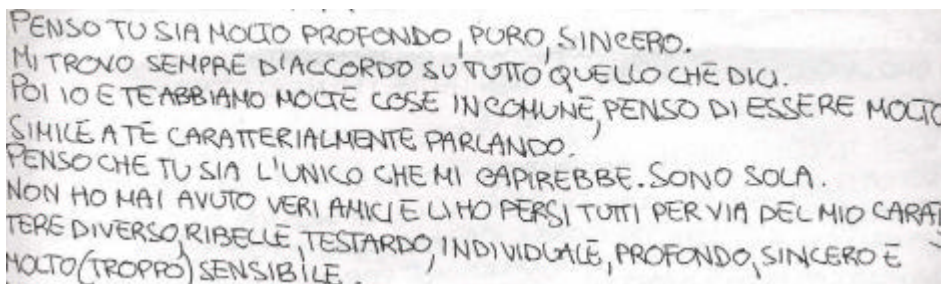 PENSO TU SIA MOLTO PROFONDO, PURO, SINCERO.
MI TROVO SEMPRE D'ACCORDO SU TUTTO QUELLO CHE DICI.
POI IO E TE ABBIAMO MOLTE COSE IN COMUNE, PENSO DI ESSERE MOLTO
SIMILE A TE CARATTERIALMENTE PARLANDO.
PENSO CHE TU SIA L'UNICO CHE MI CAPIREBBE. SONO SOLA.
NON HO MAI AVUTO VERI AMICI E LI HO PERSI TUTTI PER VIA DEL MIO CARAT
TERE DIVERSO, RIBELLE, TESTARDO, INDIVIDUALE, PROFONDO, SINCERO E
MOLTO (TROPPO) SENSIBILE.